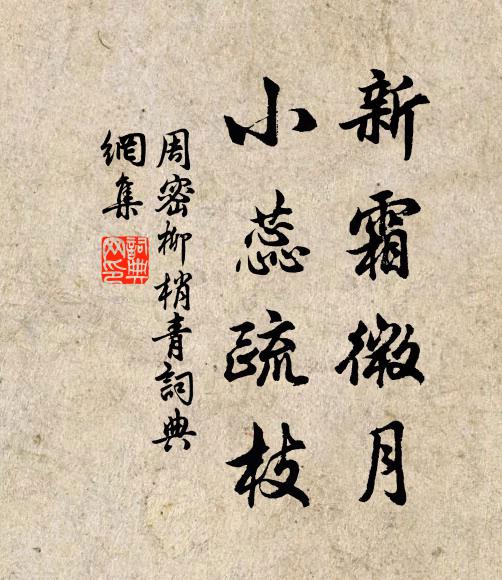 新霜微月
小蕊疏枝
周密柳梢青詞典
網集
詞典
网印